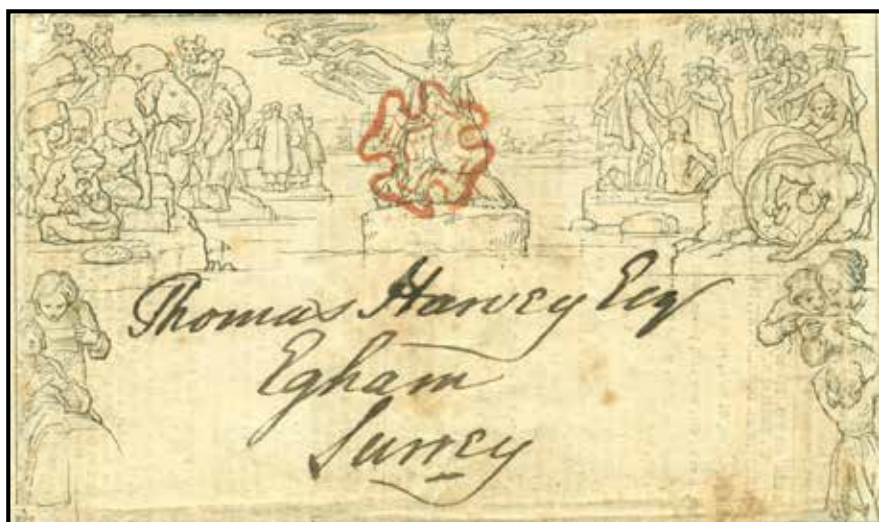 Thomas Harvey Esq
Egham
Surrey